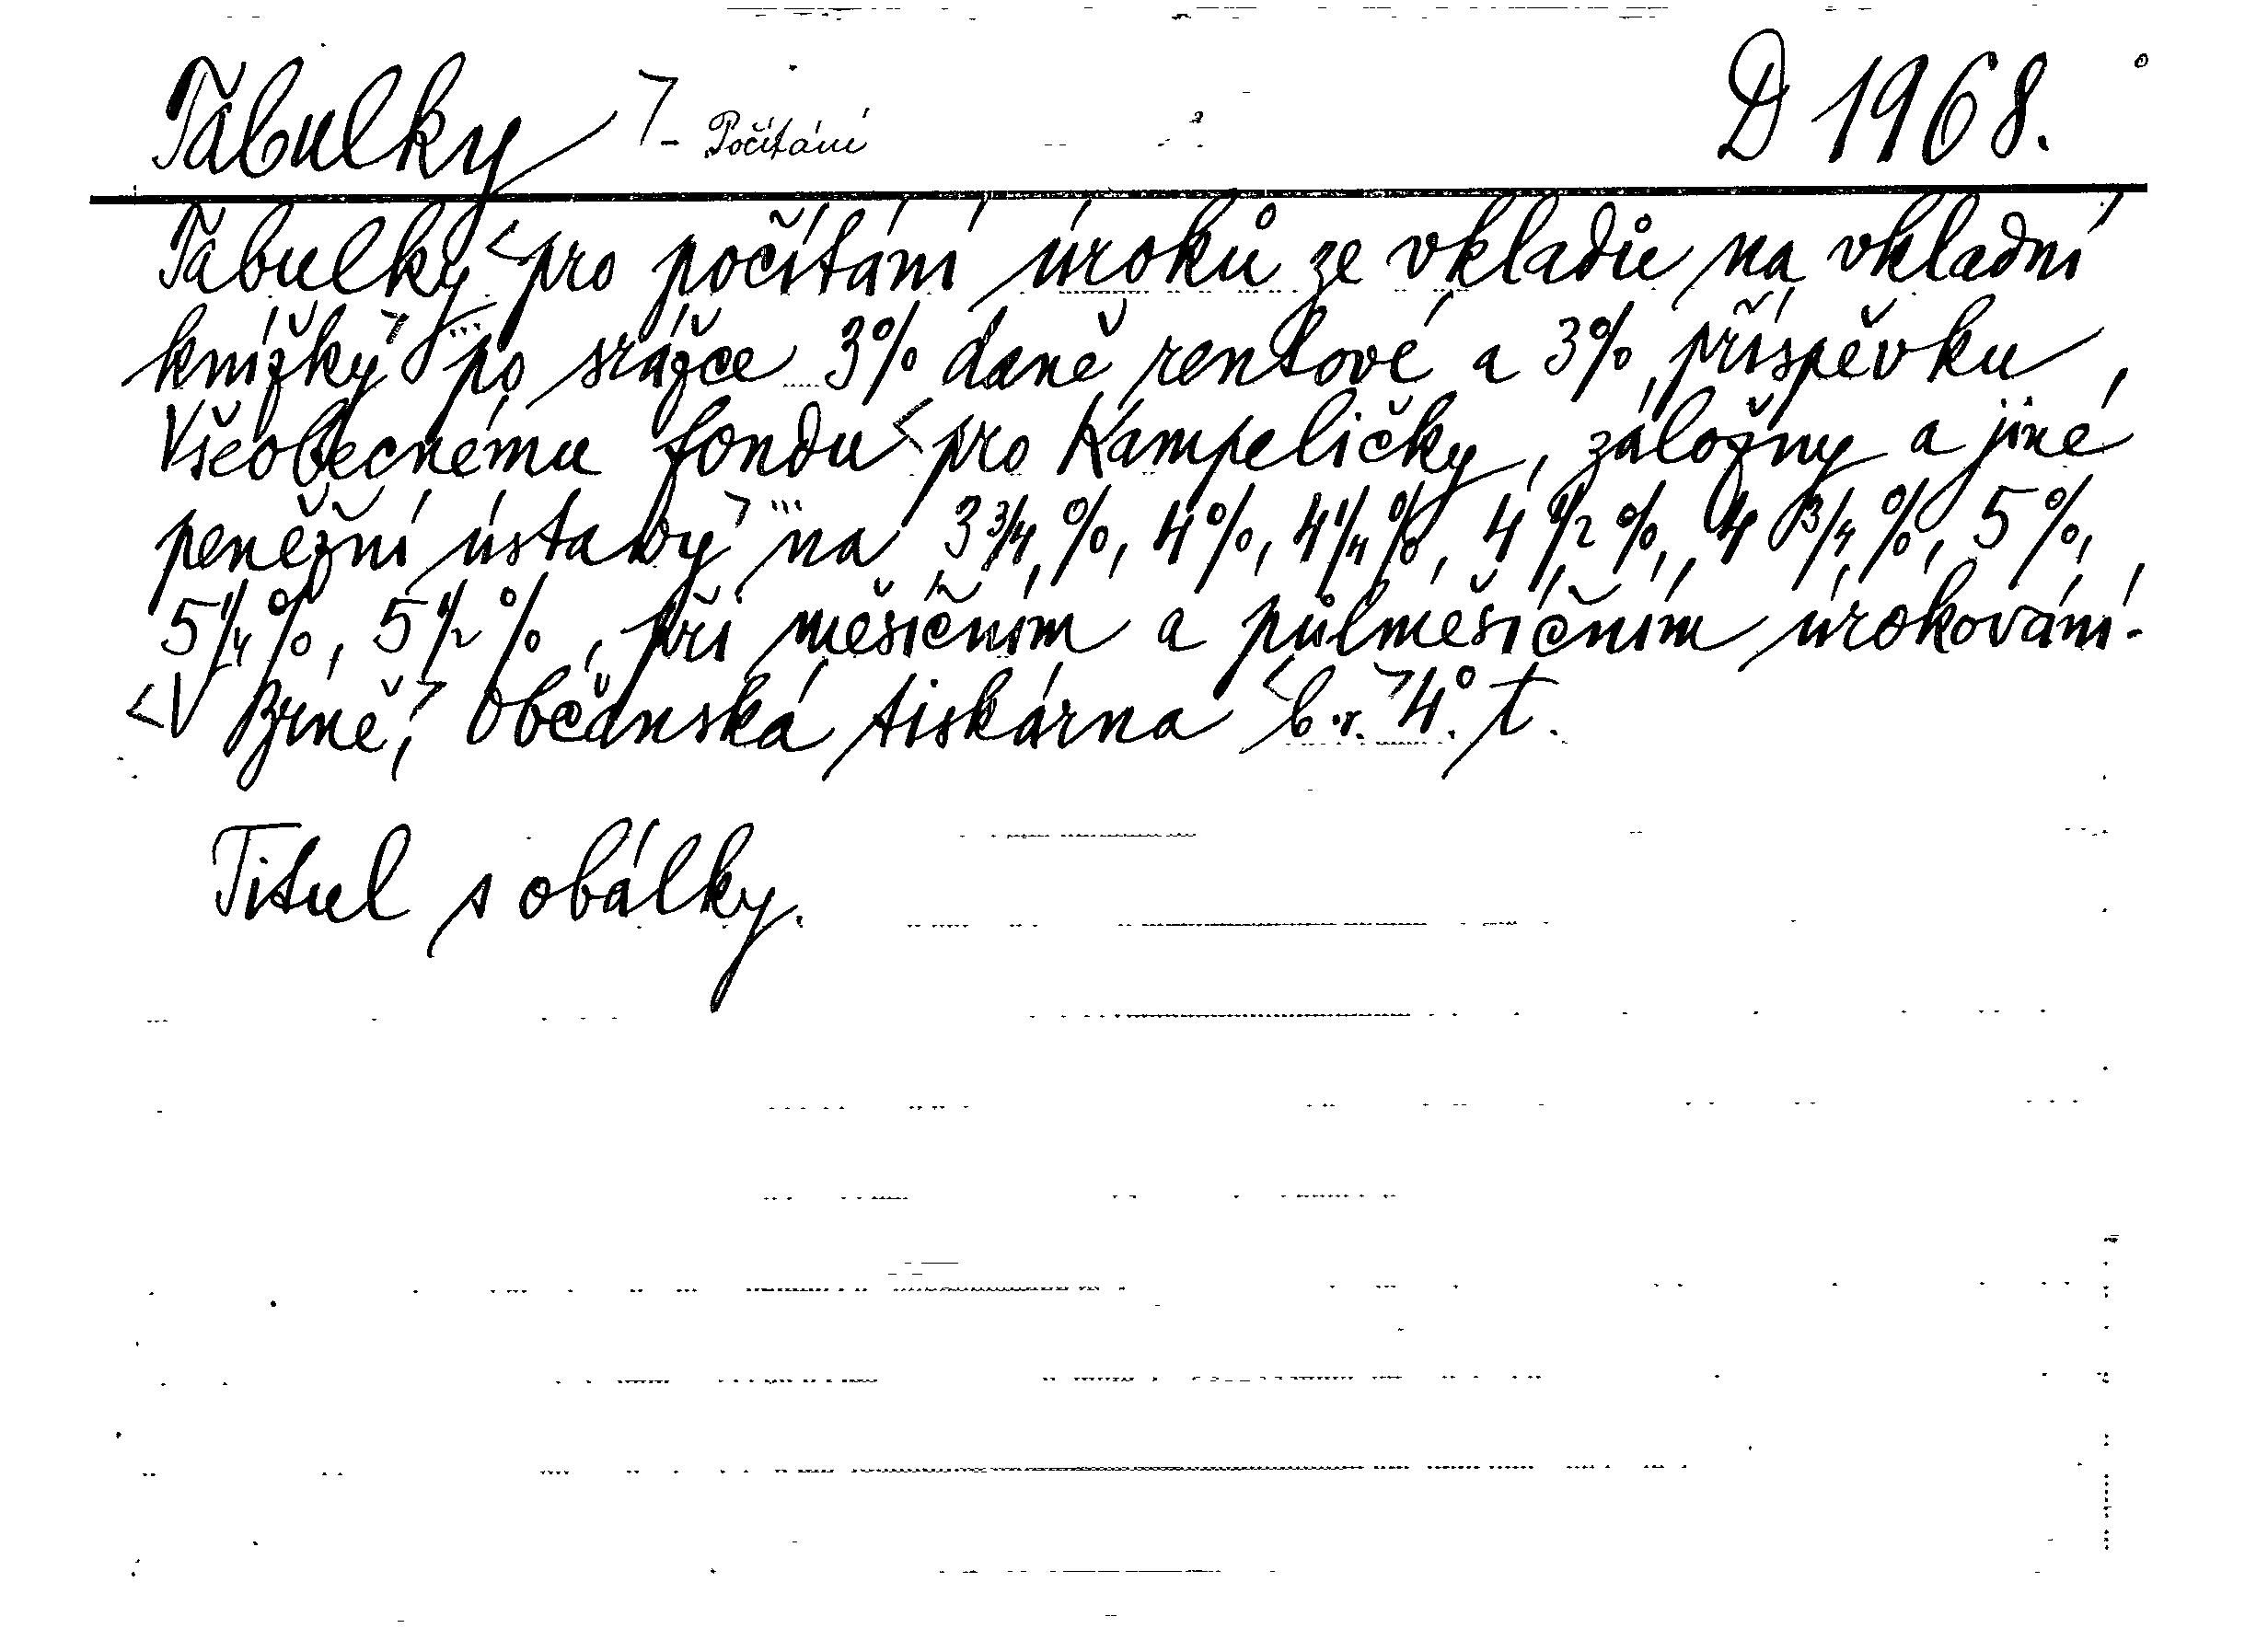 Tabulky > - Počítání D 1968.
Tabulky < pro počítání úroků ze vkladů na vkladní
knížky > ... po srážce 3% daně rentové a 3% příspěvku
Všeobecnému fondu < pro Kampeličky, záložny a jiné
peněžní ústavy > ... na 3 3/4 %, 4%, 4 1/4 %, 4 1/2 %, 4 3/4 %, 5%,
5 1/4 %, 5 1/2 %, při měsíčním a půlměsíčním úrokování.
< V Brně, > Občanská tiskárna < b.r. > 4°. t.
Titul s obálky.